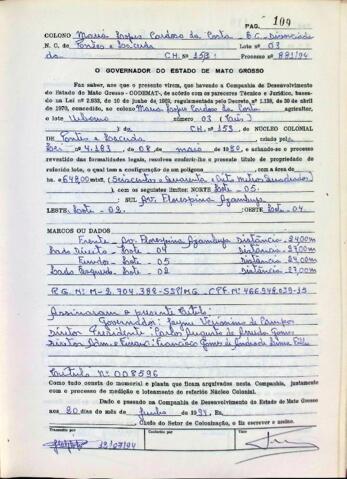 PAG. 109
COLONO Maria Lopes Cardoso da Costa - B.C. Divorciada
N. C. de Pontes e Lacerda Lote nº 03
da CH. Nº 153 Processo 881/94
O GOVERNADOR DO ESTADO DE MATO GROSSO
Faz saber, aos que o presente virem, que havendo a Companhia de Desenvolvimento
do Estado de Mato Grosso - CODEMAT, de acordo com os pareceres Técnico e Jurídico, basea-
do na Lei nº 2.938, de 10 de junho de 1969, regulamentada pelo Decreto nº 1.138, de 30 de abril
de 1970, concedido ao colono Maria Lopes Cardoso da Costa agricultor,
o lote Urbano número 03 (três)
CH. Nº 153 do NÚCLEO COLONIAL
de Pontes e Lacerda criado pela
Lei 4.183, de 08 de maio 1980 e achando-se o processo
revestido das formalidades legais, resolveu conferir-lhe o presente título de propriedade do
referido lote, o qual tem a configuração de um polígono com a área de
ha 648,00 mts² (Seiscentos e Quarenta e Oito Metros Quadrados)
com os seguintes limites: NORTE Lote - 05.
SUL Av. Florespina Azambuja
LESTE: Lote - 02. OESTE Lote - 04.
MARCOS OU DADOS
Frente - Av. Florespina Azambuja Distância - 24,00m
Lado Direito - Lote - 04 Distância - 27,00m
Fundos - Lote - 05 Distância - 24,00m
Lado Esquerdo - Lote - 02 Distância - 27,00m
R.G. Nº M-2.704.388-SSP/MG. - CPF. Nº 466.948.039-15
Assinaram o presente título:
Governador: Jayme Veríssimo de Campos
Diretor Presidente: Carlos Augusto de Arruda Gomes
Diretor Adm. e Financ: Francisco Gomes de Andrade Lima Filho
Título Nº 008596
Como tudo consta do memorial e planta que ficam arquivados nesta Companhia, juntamente
com o processo de medição e loteamento do referido Núcleo Colonial.
Dado e passado na Companhia de Desenvolvimento do Estado de Mato Grosso
aos 20 dias do mês de Junho de 1994. Eu,
Chefe do Setor de Colonização, o fiz escrever e assino.
Transcrito por Conferido por Visto
12/07/94